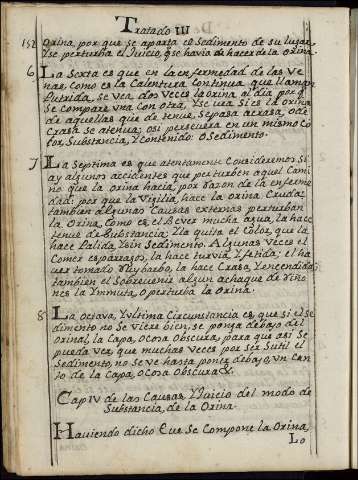 Tratado III
152
orina, por que se aparta el Sedimento de su lugar,
Yse perturba el Juicio, qse havia de hacer de la orina.
6 La Sexta es que en la enfermedad de las Ve
nas, como es la Calentura Continua que llaman
Putrida, se vea dos veces la orina al dia por q
Se compare una con otra, Yse vea si es la orina
de aquellas que de tenue, se pasa a crasa, o de
Crasa se atenua; o si persevera en un mismo Co
lor, Substancia, Y contenido: o Sedimento.
7 La Septima es que atentamente Consideremos Si
ay algunos accidentes que perturben aquel Cami
no que la orina hacia, por razon de la enferme
dad: por que la Vigilia, hace la orina Cruda;
tambien algunas Causas externas perturban
la orina, Como es, el Bever mucha agua, la hace
tenue de Substancia: Y la quita el Color, que la
hace Palida, Y sin Sedimento. Algunas veces el
Comer esparragos, la hace turvia, Y fetida; el ha
ver tomado Ruybarbo, la hace Crasa, Y encendida;
tambien el Sobrevenir algun achaque de riño
nes la Ymmuta, o perturba la orina.
8 La octava, Y ultima Circunstancia es, que si el se
dimento no Se viere bien, se ponga debajo del
orinal la Capa, o Cosa obscura, para que asi Se
pueda ver, que muchas veces por Ser Sutil el
Sedimento, no Se ve hasta poner debajo, un Can
to de la Capa, o Cosa obscura &.
Cap IV de las Causas, Y Juicio del modo de
Substancia, de la Orina.
Haviendo dicho Que Se Compone la Orina,
Lo